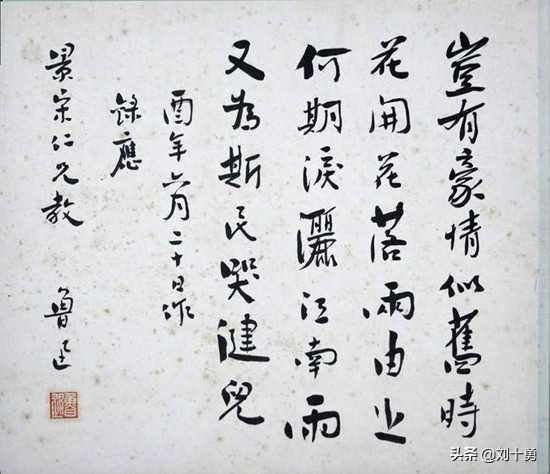 豈有豪情似舊時
花開花落兩由之
何期淚灑江南雨
又為斯民哭健兒
酉年六月二十日作
錄應
景宋仁兄教
魯迅
头条 @刘十勇